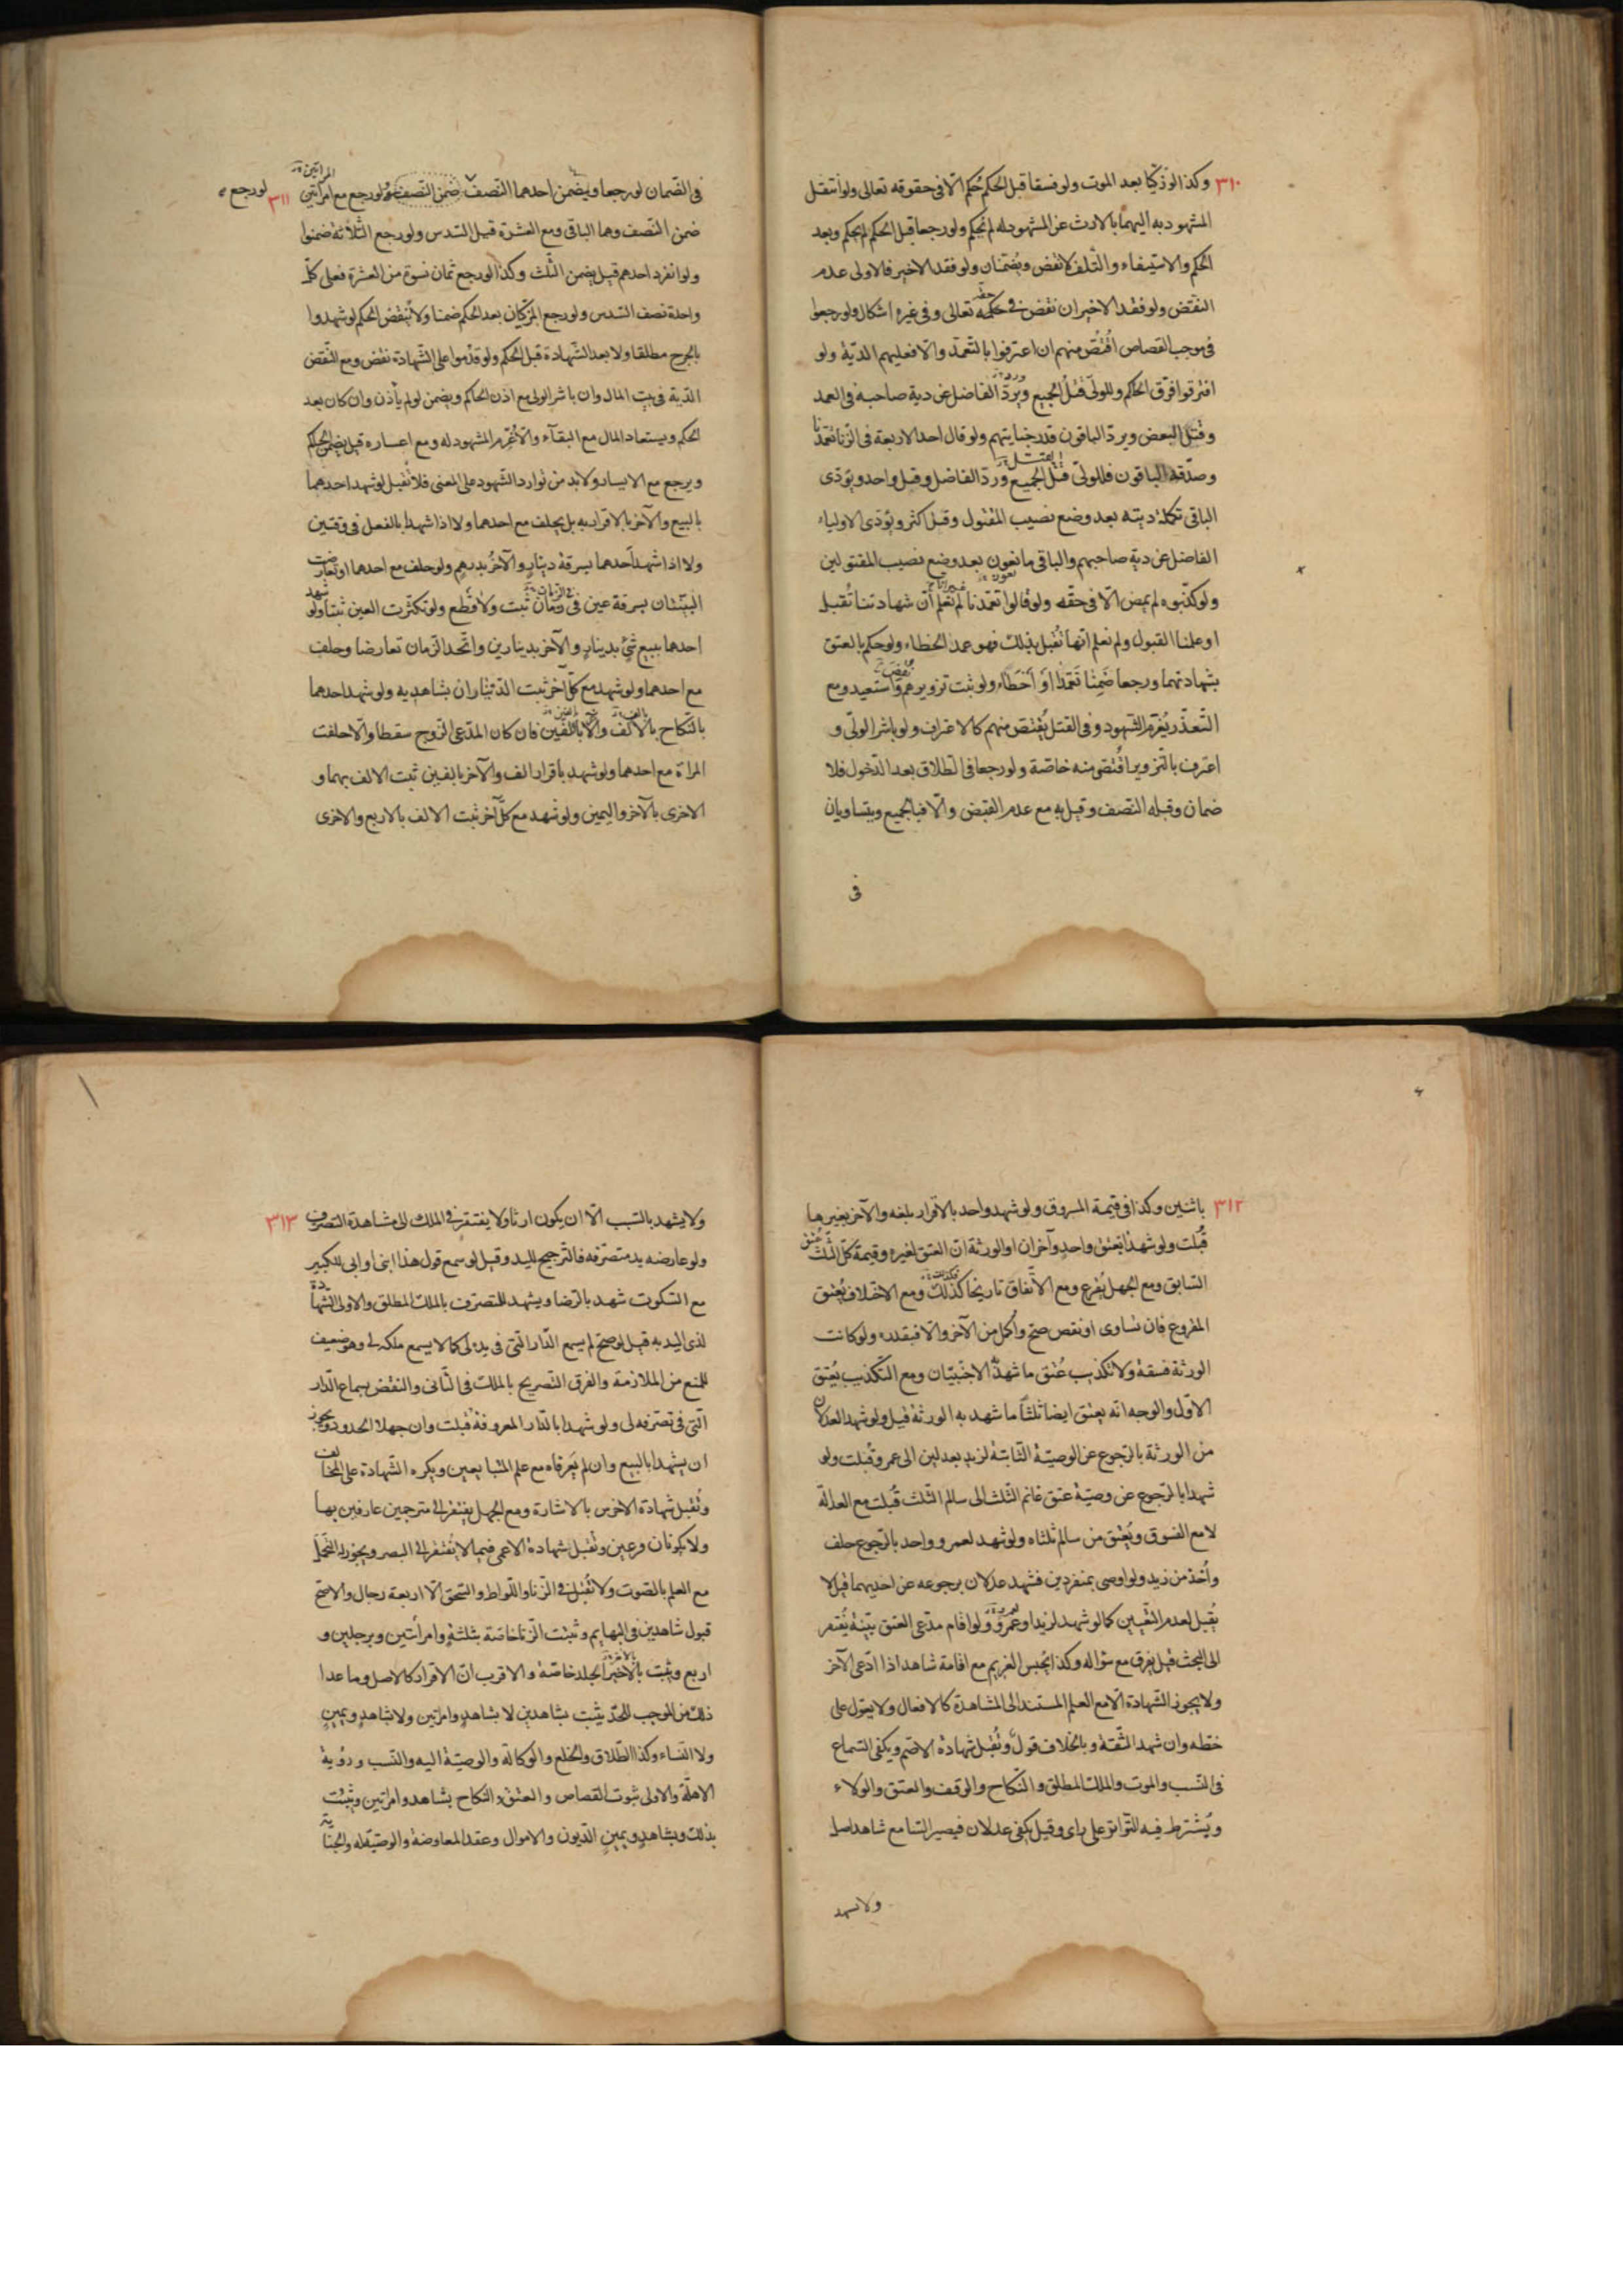 ٣١٠ وكذا لو زكّيا بعد الموت ولو فسقا قبل الحكم حُكم الّا فى حقوقه تعالى ولو انتقل
المشهود به اليهما بالارث عن المشهود له لم يحكم ولو رجعا قبل الحكم لم يحكم وبعد
الحكم والاستيفاء والتّلف لا نقض ويُضمنان ولو فقد الاخير فالاولى عدم
النقض ولو فقد الاخيران نقض فى حكمه تعالى وفى غيره اشكال ولو رجعوا
فى موجب القصاص اقتُصّ منهم ان اعترفوا بالتعمّد والّا فعليهم الديّة ولو
افترقوا فرّق الحكم وللولىّ قتل الجميع ويردّ الفاضل عن دية صاحبه فى العمد
وقتل البعض ويردّ الباقون قدر جنايتهم ولو قال احد الاربعة فى الزنا تعمّدنا
وصدّقه الباقون فللولىّ قتل الجميع وردّ الفاضل وقتل واحد ويؤدّى
الباقى تكملة ديته بعد وضع نصيب المقتول وقتل اكثر ويؤدّى الاولياء
الفاضل عن دية صاحبهم والباقى ما تعون بعد وضع نصيب المقتولين
ولو كذّبوه لم يمض الّا فى حقّه ولو قالوا تعمّدنا لم نعلم أنّ شهادتنا تُقبل
او علمنا القبول ولم نعلم انّها تُقبل بذلك فهو عمد الخطاء ولو حكم بالعتق
بشهادتهما ورجعا ضَمِنا تَعَمَّدا او أخطَاء ولو ثبت تزويرهم استعيد ومع
التّعذّر يُغرّم الشّهود وفى القتل يُقتصّ منهم كالاعتراف ولو باشر الولىّ و
اعترف بالتزوير اقتُصّ منه خاصّة ولو رجعا فى الطلاق بعد الدّخول فلا
ضمان وقبله النّصف وقيل به مع عدم القبض والّا فبالجميع ويتساويان
فى
فى الضّمان لو رجعا ويضمن احدهما النّصف ضمن النّصف ولو رجع مع امرأتين ٣١١ لو رجع
ضمن النّصف وهما الباقى ومع العشرة قيل السّدس ولو رجع الثّلاثة ضمنوا
ولو انفرد احدهم قيل يضمن الثّلث وكذا لو رجع ثمان نسوة من العشرة فعلى كلّ
واحدة نصف السّدس ولو رجع المزكّيان بعد الحكم ضمنا ولا يُنقض الحكم لو شهدوا
بالجرح مطلقا ولا بعد الشّهادة قبل الحكم ولو قدّموا على الشّهادة نقض ومع النّقض
الدّية فى بيت المال وان باشر الولىّ مع اذن الحاكم ويضمن لو لم يأذن وان كان بعد
الحكم ويستعاد المال مع البقآء والّا غُرّم المشهود له ومع اعساره قيل يضمن الحاكم
ويرجع مع الايسار ولا بد من توارد الشّهود على المعنى فلا تُقبل لو شهد احدهما
بالبيع والآخر بالاقرار به بل يحلف مع احدهما ولا اذا شهدا بالفعل فى وقتين
ولا اذا شهد احدهما بسرقة دينار والآخر بدرهم ولو حلف مع احدهما او تعارضت
البيّنتان بسرقة عين فى زمان ثبت ولا قطع ولو تكثّرت العين ثبتا ولو شهد
احدهما ببيع شئ بدينار والآخر بدينارين واتّحد الزمان تعارضا وحلف
مع احدهما ولو شهد مع كلّ آخر ثبت الدّيناران بشاهديه ولو شهد احدهما
بالنّكاح بالألف والآخر بالفين فان كان المدّعى الزوج سقطا والّا حلفت
المراة مع احدهما ولو شهد باقرار الف والآخر بالفين ثبت الالف بهما و
الاخرى بالآخر واليمين ولو شهد مع كلّ آخر ثبت الالف بالاربع والاخرى
٣١٢ باثنين وكذا فى قيمة المسروق ولو شهد واحد بالاقرار بلغة والآخر بغيرها
قُبلت ولو شهدا بعتق واحد وآخران او الورثة انّ العتق لغيره وقيمة كلّ الثّلث عُتق
السّابق ومع الجهل يُقرع ومع الاتّفاق تاريخا كذلك ومع الاختلاف يُعتق
المقروع فان تساوى او نقص صحّ وأُكمل من الآخر والّا فبقدره ولو كانت
الورثة فسقة ولا تكذيب عُتق ما شهد به الاجنبيّان ومع التّكذيب يُعتق
الاوّل والوجه انّه يعتق ايضا ثلثا ما شهد به الورثة قيل ولو شهد العدلان
من الورثة بالرّجوع عن الوصيّة الثّابتة لزيد بعدلين الى عمرو قُبلت ولو
شهدا بالرّجوع عن وصيّة عتق غانم الثّلث الى سالم الثّلث قُبلت مع العدالة
لا مع الفسوق ويُعتق من سالم ثلثاه ولو شهد لعمرو واحد بالرّجوع حلف
وأُخذ من زيد ولو اوصى بمنفردين فشهد عدلان برجوعه عن احديهما قيل لا
يُقبل لعدم التّعيين كما لو شهد لزيد او عمرو ولو اقام مدّعى العتق بيّنة تُفتقر
الى البحث قيل يفرق مع سؤاله وكذا يحبس الغريم مع اقامة شاهد اذا ادّعى الآخر
ولا يجوز الشّهادة الّا مع العلم المستند الى المشاهدة كالافعال ولا يعوّل على
خطّه وان شهد الثّقة وبالخلاف قول وتُقبل شهادة الاصمّ ويكفى السّماع
فى النّسب والموت والملك المطلق والنّكاح والوقف والعتق والولاء
ويُشترط فيه التّواتر على راى وقيل يكفى عدلان فيصير السّامع شاهد اصل
ولا يشهد
ولا يشهد بالسّبب الّا ان يكون ارثا ولا يفتقر فى الملك الى مشاهدة التصرّف ٣١٣
ولو عارضه يد متصرّفه فالتّرجيح لليد وقيل لو سمع قول هذا ابنى او ابى للكبير
مع السّكوت شهد بالرّضا ويشهد للتصرّف بالملك المطلق والاولى الشّهادة
لذى اليد به قيل لو صحّ لم يسمع الدّار الّتى فى يده لى كما لا يسمع ملكه لى وهو ضعيف
للمنع من الملازمة والفرق التّصريح بالملك فى الثّانى والنقض بسماع الدّار
الّتى فى تصرّفه لى ولو شهدا بالدّار المعروفة قُبلت وان جهلا الحدود ويجوز
ان يشهدا بالبيع وان لم يَعرفاه مع علم المتبايعين ويكره الشّهادة على المخالف
وتُقبل شهادة الاخرس بالاشارة ومع الجهل يفتقر الى مترجمين عارفين بها
ولا يكونان فرعين وتُقبل شهادة الاعمى فيما لا يُفتقر الى البصر ويجوز له التّحمّل
مع العلم بالصّوت ولا تُقبل فى الزّنا واللّواط والسّحق الّا اربعة رجال والاصحّ
قبول شاهدين فى البهايم وتثبت الزّنا خاصّة بثلثةٍ وامراتين وبرجلين و
اربع ويثبت بالاخير الجلد خاصّة والاقرب انّ الاقرار كالاصل وما عدا
ذلك من الموجب للحدّ يثبت بشاهدين لا بشاهدٍ وامراتين ولا بشاهدٍ ويمينٍ
ولا النّساء وكذا الطّلاق والخلع والوكالة والوصيّة اليه والنّسب ورؤية
الاهلّة والاولى ثبوت القصاص والعتق والنّكاح بشاهد وامراتين ويثبت
بذلك وبشاهدٍ ويمينٍ الدّيون والاموال وعقد المعاوضة والوصيّة له والجناية